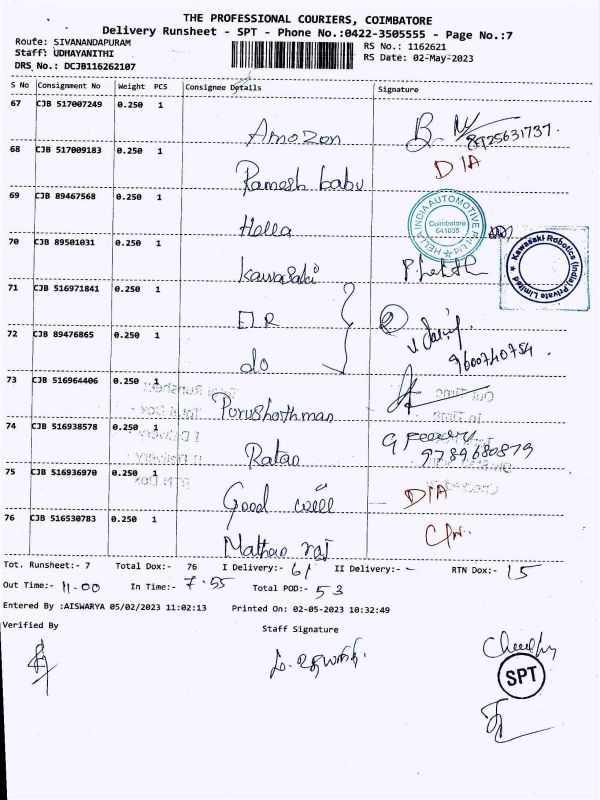 THE PROFESSIONAL COURIERS, COIMBATORE
Delivery Runsheet - SPT - Phone No.:0422-3505555 - Page No.:7
Route: SIVANANDAPURAM
RS No.: 1162621
Staff: UDHAYANITHI
RS Date: 02-May-2023
DRS No.: DCJB116262107
S No Consignment No Weight PCS Consignee Details Signature
67 CJB 517007249 0.250 1
Amazon 8925631737.
68 CJB 517009183 0.250 1
Ramesh babu D/A
69 CJB 89467568 0.250 1
Hella
HELLA INDIA AUTOMOTIVE Pvt Ltd
Coimbatore
641035
70 CJB 89501031 0.250 1
Kawasaki
Kawasaki Robotics (India) Private Limited
71 CJB 516971841 0.250 1
72 CJB 89476865 0.250 1
do 9600740754.
73 CJB 516964406 0.250 1
Purushothman
74 CJB 516938578 0.250 1
Ratan 9789680879
75 CJB 516936970 0.250 1
Good will D/A
76 CJB 516530783 0.250 1
Mathan raj
Tot. Runsheet:- 7 Total Dox:- 76 I Delivery:- 61 II Delivery:- - RTN Dox:- 15
Out Time:- 11.00 In Time:- 7.55 Total POD:- 53
Entered By :AISWARYA 05/02/2023 11:02:13 Printed On: 02-05-2023 10:32:49
Verified By Staff Signature
SPT